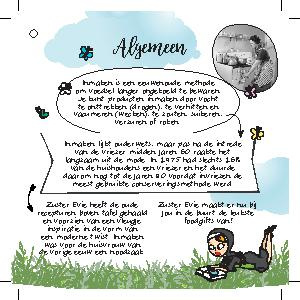 Algemeen
Inmaken is een eeuwenoude methode
om voedsel langer ongekoeld te bewaren.
Je kunt producten inmaken door vocht
te onttrekken (drogen), te verhitten en
vacumeren (wecken), te zouten, suikeren,
verzuren of roken.
Inmaken lijkt ouderwets, maar pas na de intrede
van de vriezer midden jaren 60 raakte het
langzaam uit de mode. In 1975 had slechts 16%
van de huishoudens een vriezer en het duurde
daarom nog tot de jaren 80 voordat invriezen de
meest gebruikte conserveringsmethode werd
Zuster Evie heeft de oude
recepturen boven tafel gehaald
en voorzien van een vleugje
inspiratie in de vorm van
een moderne twist. Inmaken
was voor de huisvrouw van
de vorige eeuw een noodzaak.
Zuster Evie maakt er nu bij
jou in de buurt de leukste
foodgifts van!